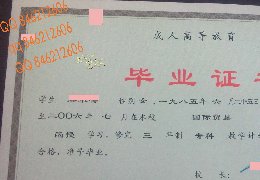 QQ 846212606
QQ 846212606
QQ 846212606
成人高等教育
毕业证书
学生 性别 女，一九八五年 六 月 十五
至二〇〇六年 七 月在本校 国际贸易
函授 学习，修完 三 年制 专科 教学计
合格，准予毕业。
校 长：